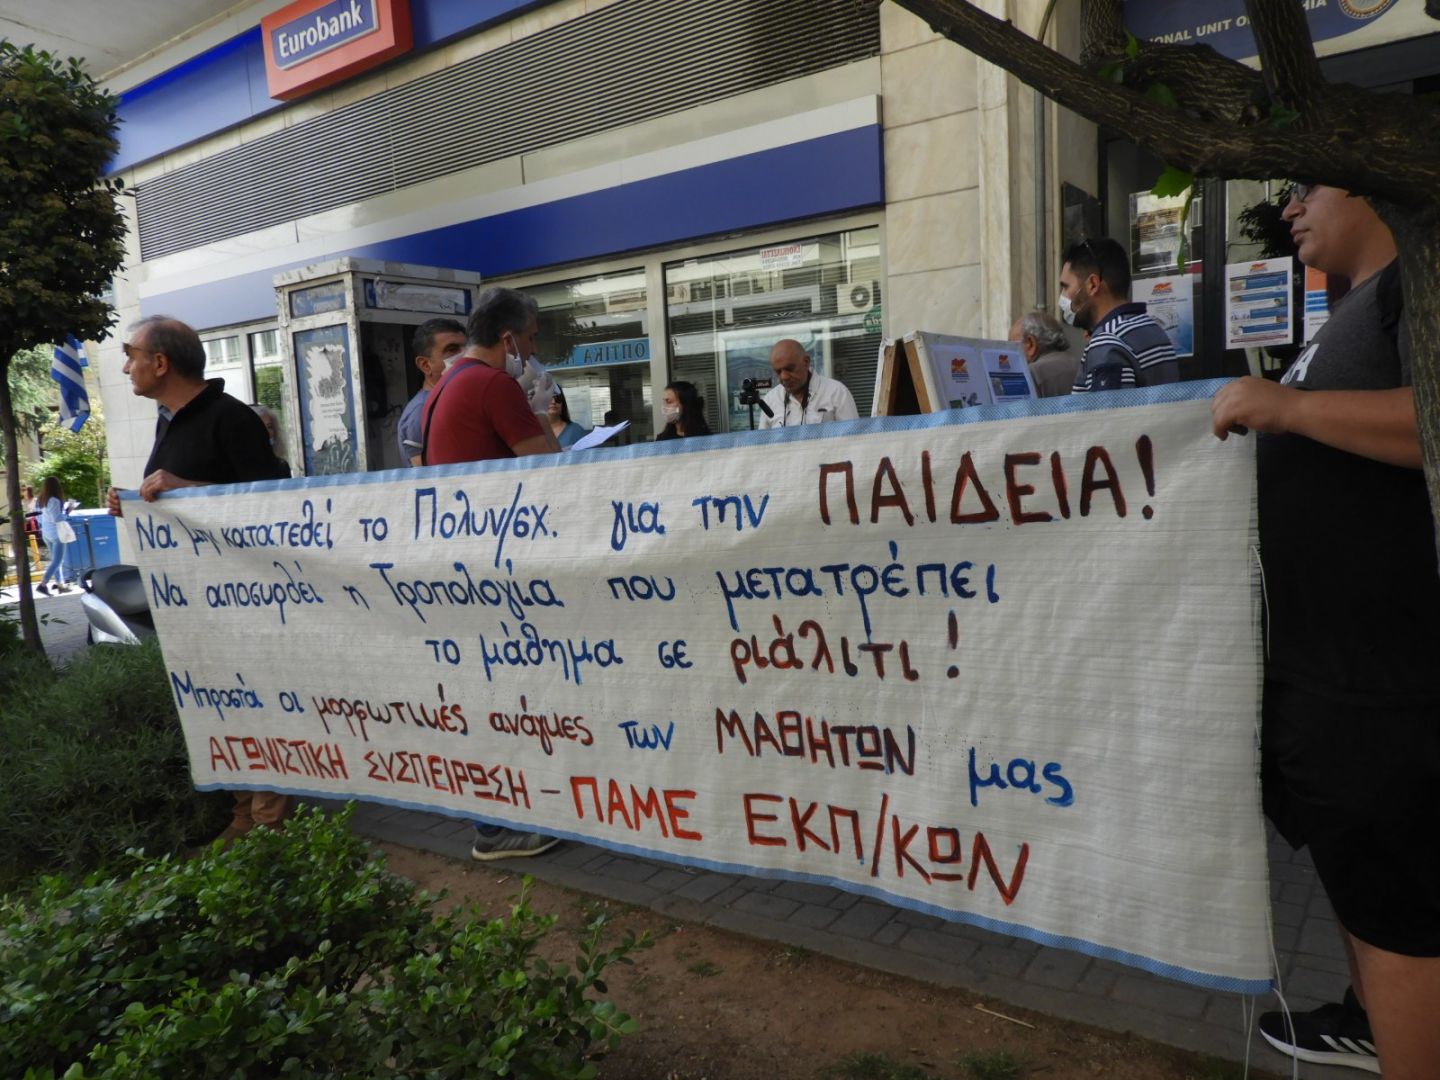 Eurobank
ΙΟΝΑL UNIT OF
HIA
ΕΝΟΙΚΙΑΖΕΤΑΙ
ΟΠΤΙΚΑ
Να μην κατατεθεί το Πολυν/σχ. για την ΠΑΙΔΕΙΑ!
Να αποσυρθεί η Τροπολογία που μετατρέπει
το μάθημα σε ριάλιτι!
Μπροστά οι μορφωτικές ανάγκες των ΜΑΘΗΤΩΝ μας
ΑΓΩΝΙΣΤΙΚΗ ΣΥΣΠΕΙΡΩΣΗ – ΠΑΜΕ ΕΚΠ/ΚΩΝ